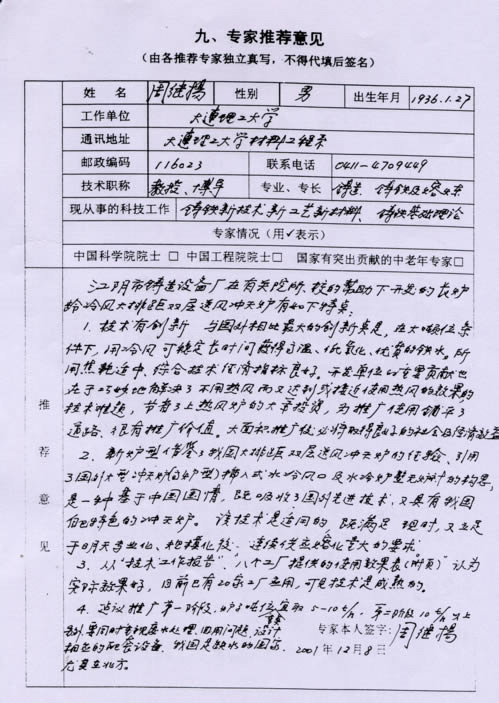 九、专家推荐意见
(由各推荐专家独立真写,不得代填后签名)
姓 名 周继扬 性别 男 出生年月 1936.1.27
工作单位 大连理工大学
通讯地址 大连理工大学材料工程系
邮政编码 116023 联系电话 0411-4709449
技术职称 教授、博导 专业、专长 铸造、铸铁及熔炼
现从事的科技工作 铸铁新技术新工艺新材料、铸铁基础理论
专家情况(用✓表示)
中国科学院院士 □ 中国工程院院士 □ 国家有突出贡献的中老年专家□
推荐意见
江阴市铸造设备厂在有关院所、校的帮助下开发的长炉
龄冷风大排距双层送风冲天炉有如下特点:
1. 技术有创新 与国外相比最大的创新点是,在大吨位条
件下,用冷风可稳定长时间获得高温、低氧化、优质的铁水。所
用焦耗适中、综合技术经济指标良好。开发单位的重要贡献也
在于巧妙地解决了不用热风而又达到或接近使用热风的效果的
技术难题,节省了上热风炉的大笔投资,为推广使用铺平了
道路、很有推广价值。大面积推广后必将取得良好的社会及经济效益
2. 新炉型借鉴了我国大排距双层送风冲天炉的经验、引用
了国外大型冲天炉(的炉型)插入式水冷风口及水冷炉壁无炉衬的构思,
是一种基于中国国情,既吸收了国外先进技术,又具有我国
自己特色的冲天炉。该技术是适用的,既满足现时,又立足
于明天专业化、规模化后,连续供应熔化量大的要求
3. 从"技术工作报告"、八个工厂提供的使用效果表(附页)认为
实际效果好,目前已有20余工厂应用,可见技术是成熟的。
4. 建议推广第一阶段,炉子吨位宜取5-10t/h,第二阶段10t/h以上
另外,要同时重视废水处理、回用问题,设计
相应的配套设备,我国是缺水的国家,
尤其在北方。
专家本人签字:周继扬
2001年12月8日